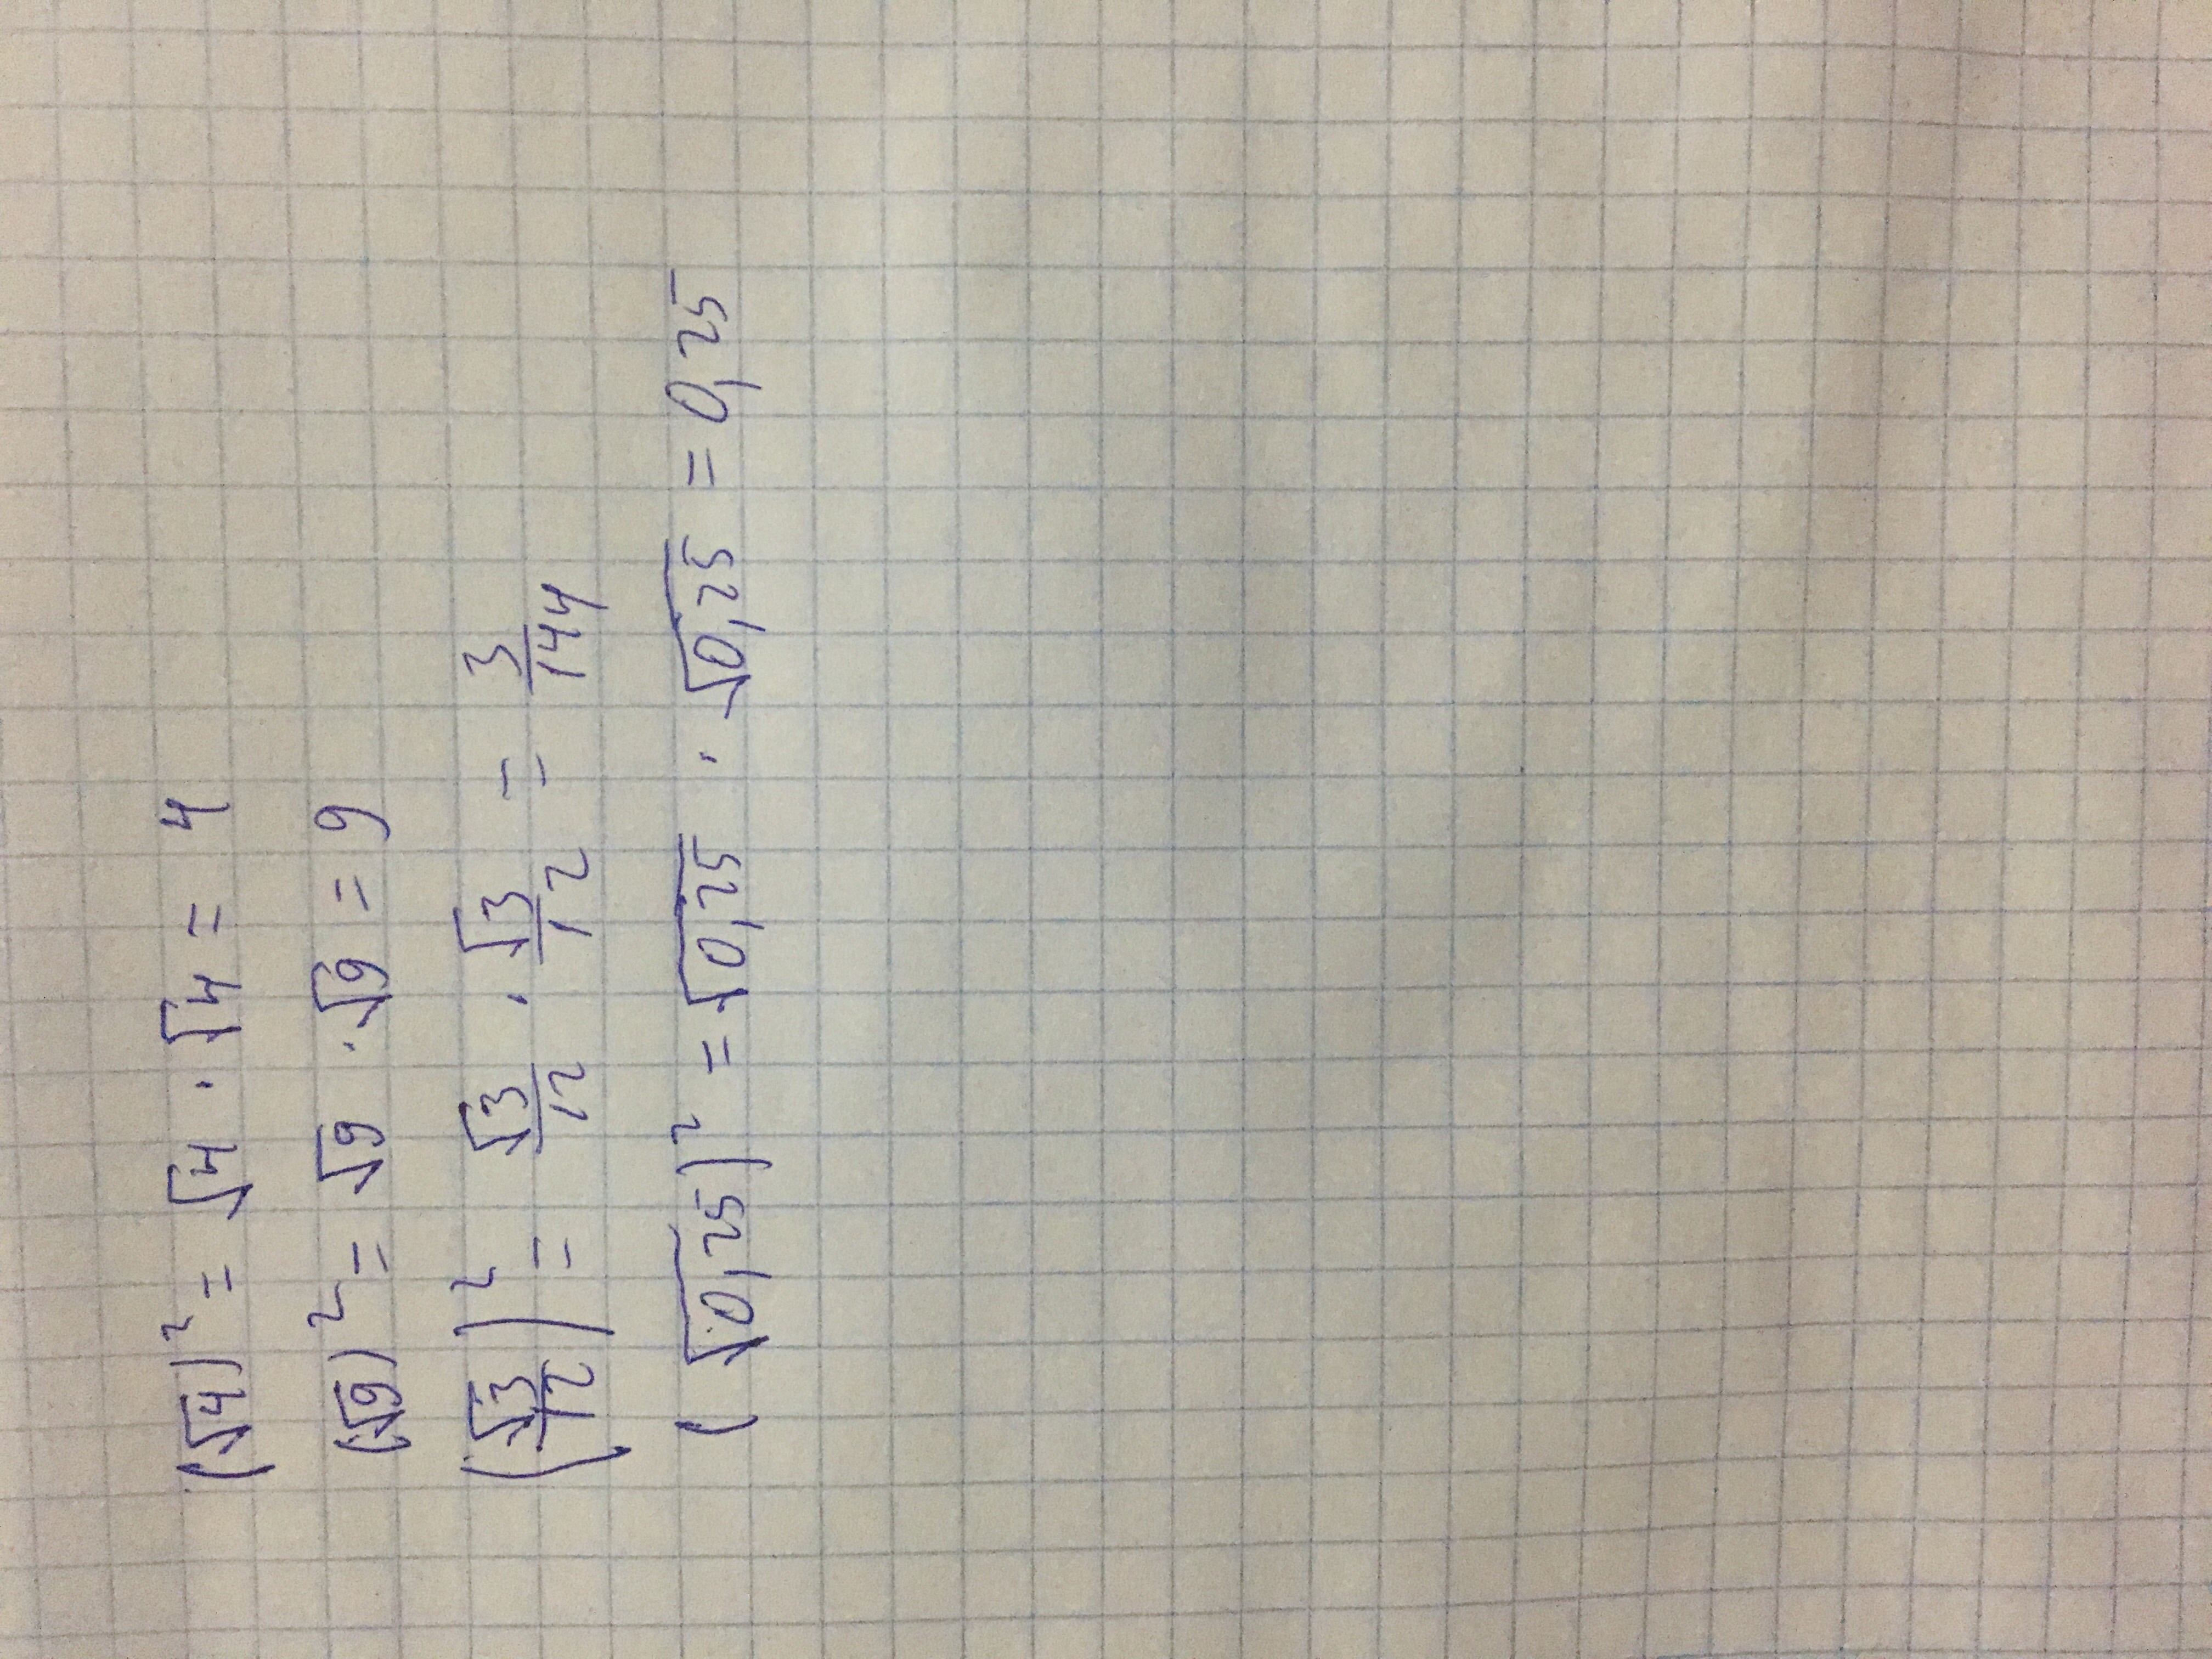 (√4)² = √4 · √4 = 4
(√9)² = √9 · √9 = 9
(√3/12)² = √3/12 · √3/12 = 3/144
(√0,25)² = √0,25 · √0,25 = 0,25